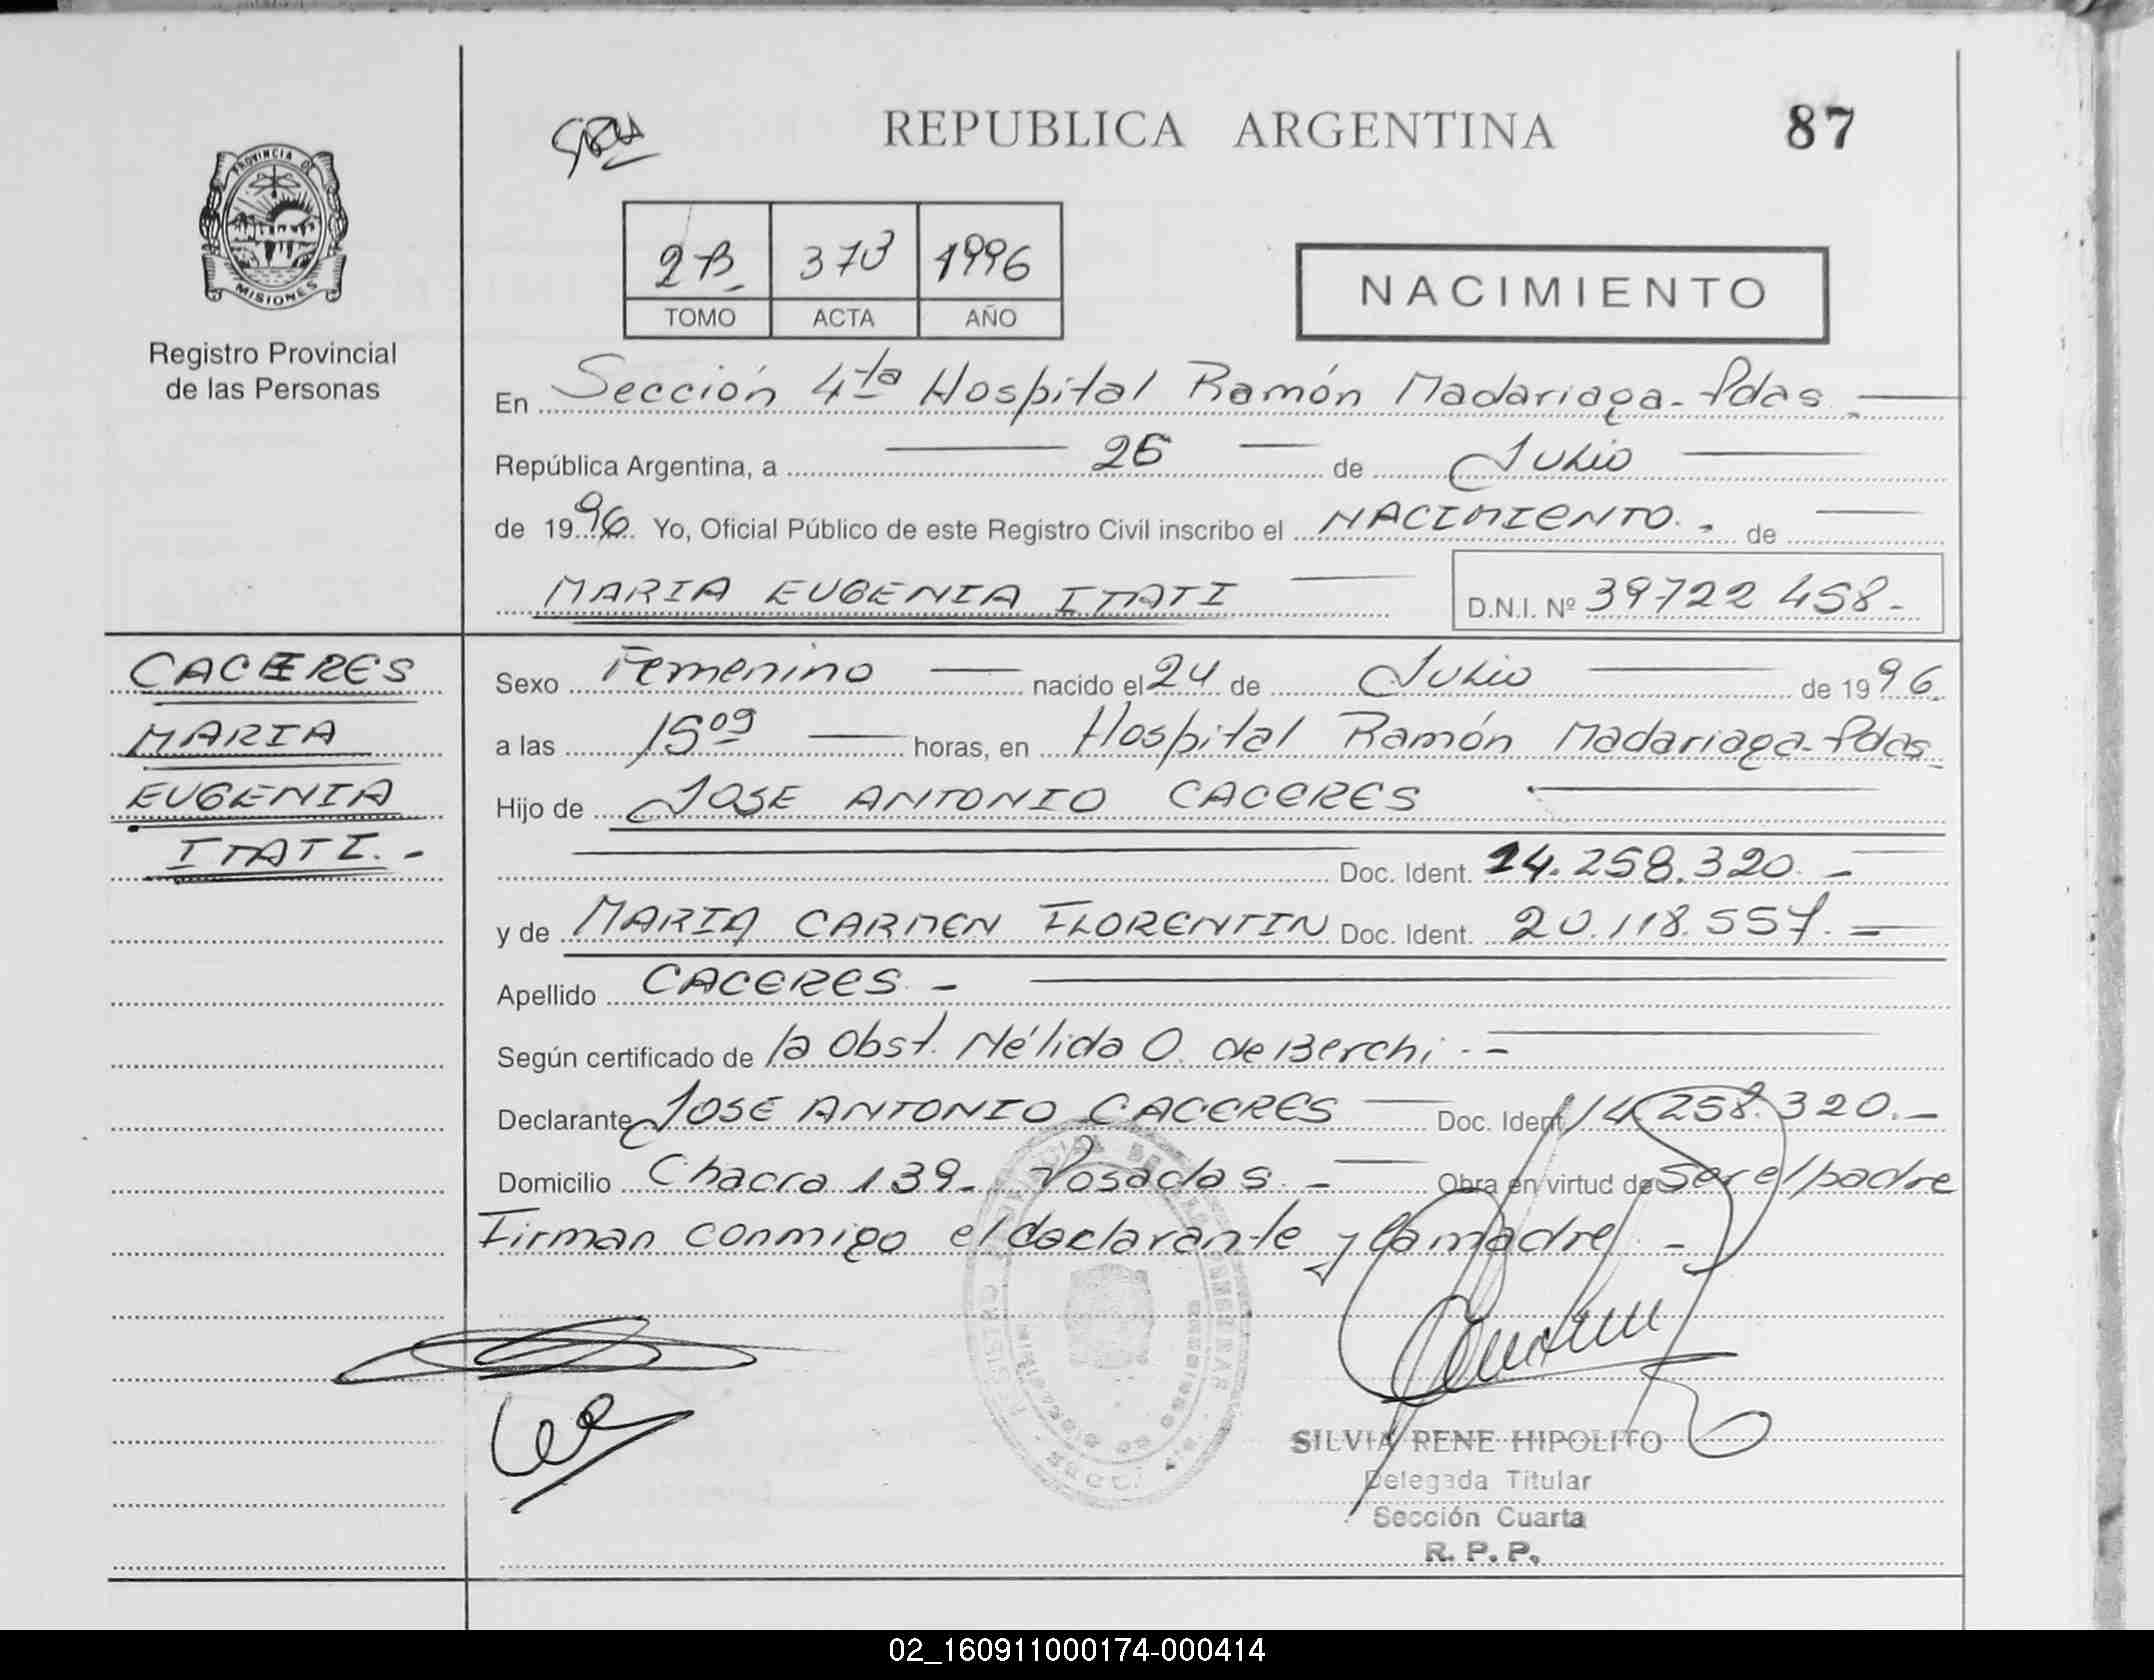 REPUBLICA ARGENTINA
87
PROVINCIA DE
MISIONES
Registro Provincial
de las Personas
2B. 373 1996
TOMO ACTA AÑO
NACIMIENTO
En Sección 4ta Hospital Ramón Madariaga - Pdas.
República Argentina, a 26 de Julio
de 1996. Yo, Oficial Público de este Registro Civil inscribo el NACIMIENTO. - de
MARIA EUGENIA ITATI D.N.I. Nº 39722 458.-
CACERES
MARIA
EUGENIA
ITATI.-
Sexo Femenino nacido el 24 de Julio de 1996.
a las 15 09 horas, en Hospital Ramón Madariaga - Pdas.
Hijo de JOSE ANTONIO CACERES
Doc. Ident. 14.258.320.-
y de MARIA CARMEN FLORENTIN Doc. Ident. 20.118.557.-
Apellido CACERES.-
Según certificado de la Obst. Nélida O. de Berchi.-
Declarante JOSE ANTONIO CACERES Doc. Ident. 14.258.320.-
Domicilio Chacra 139.- Posadas.- Obra en virtud de ser el padre
Firman conmigo el declarante y la madre.-
SILVIA RENE HIPOLITO
Delegada Titular
Sección Cuarta
R. P. P.
02_160911000174-000414